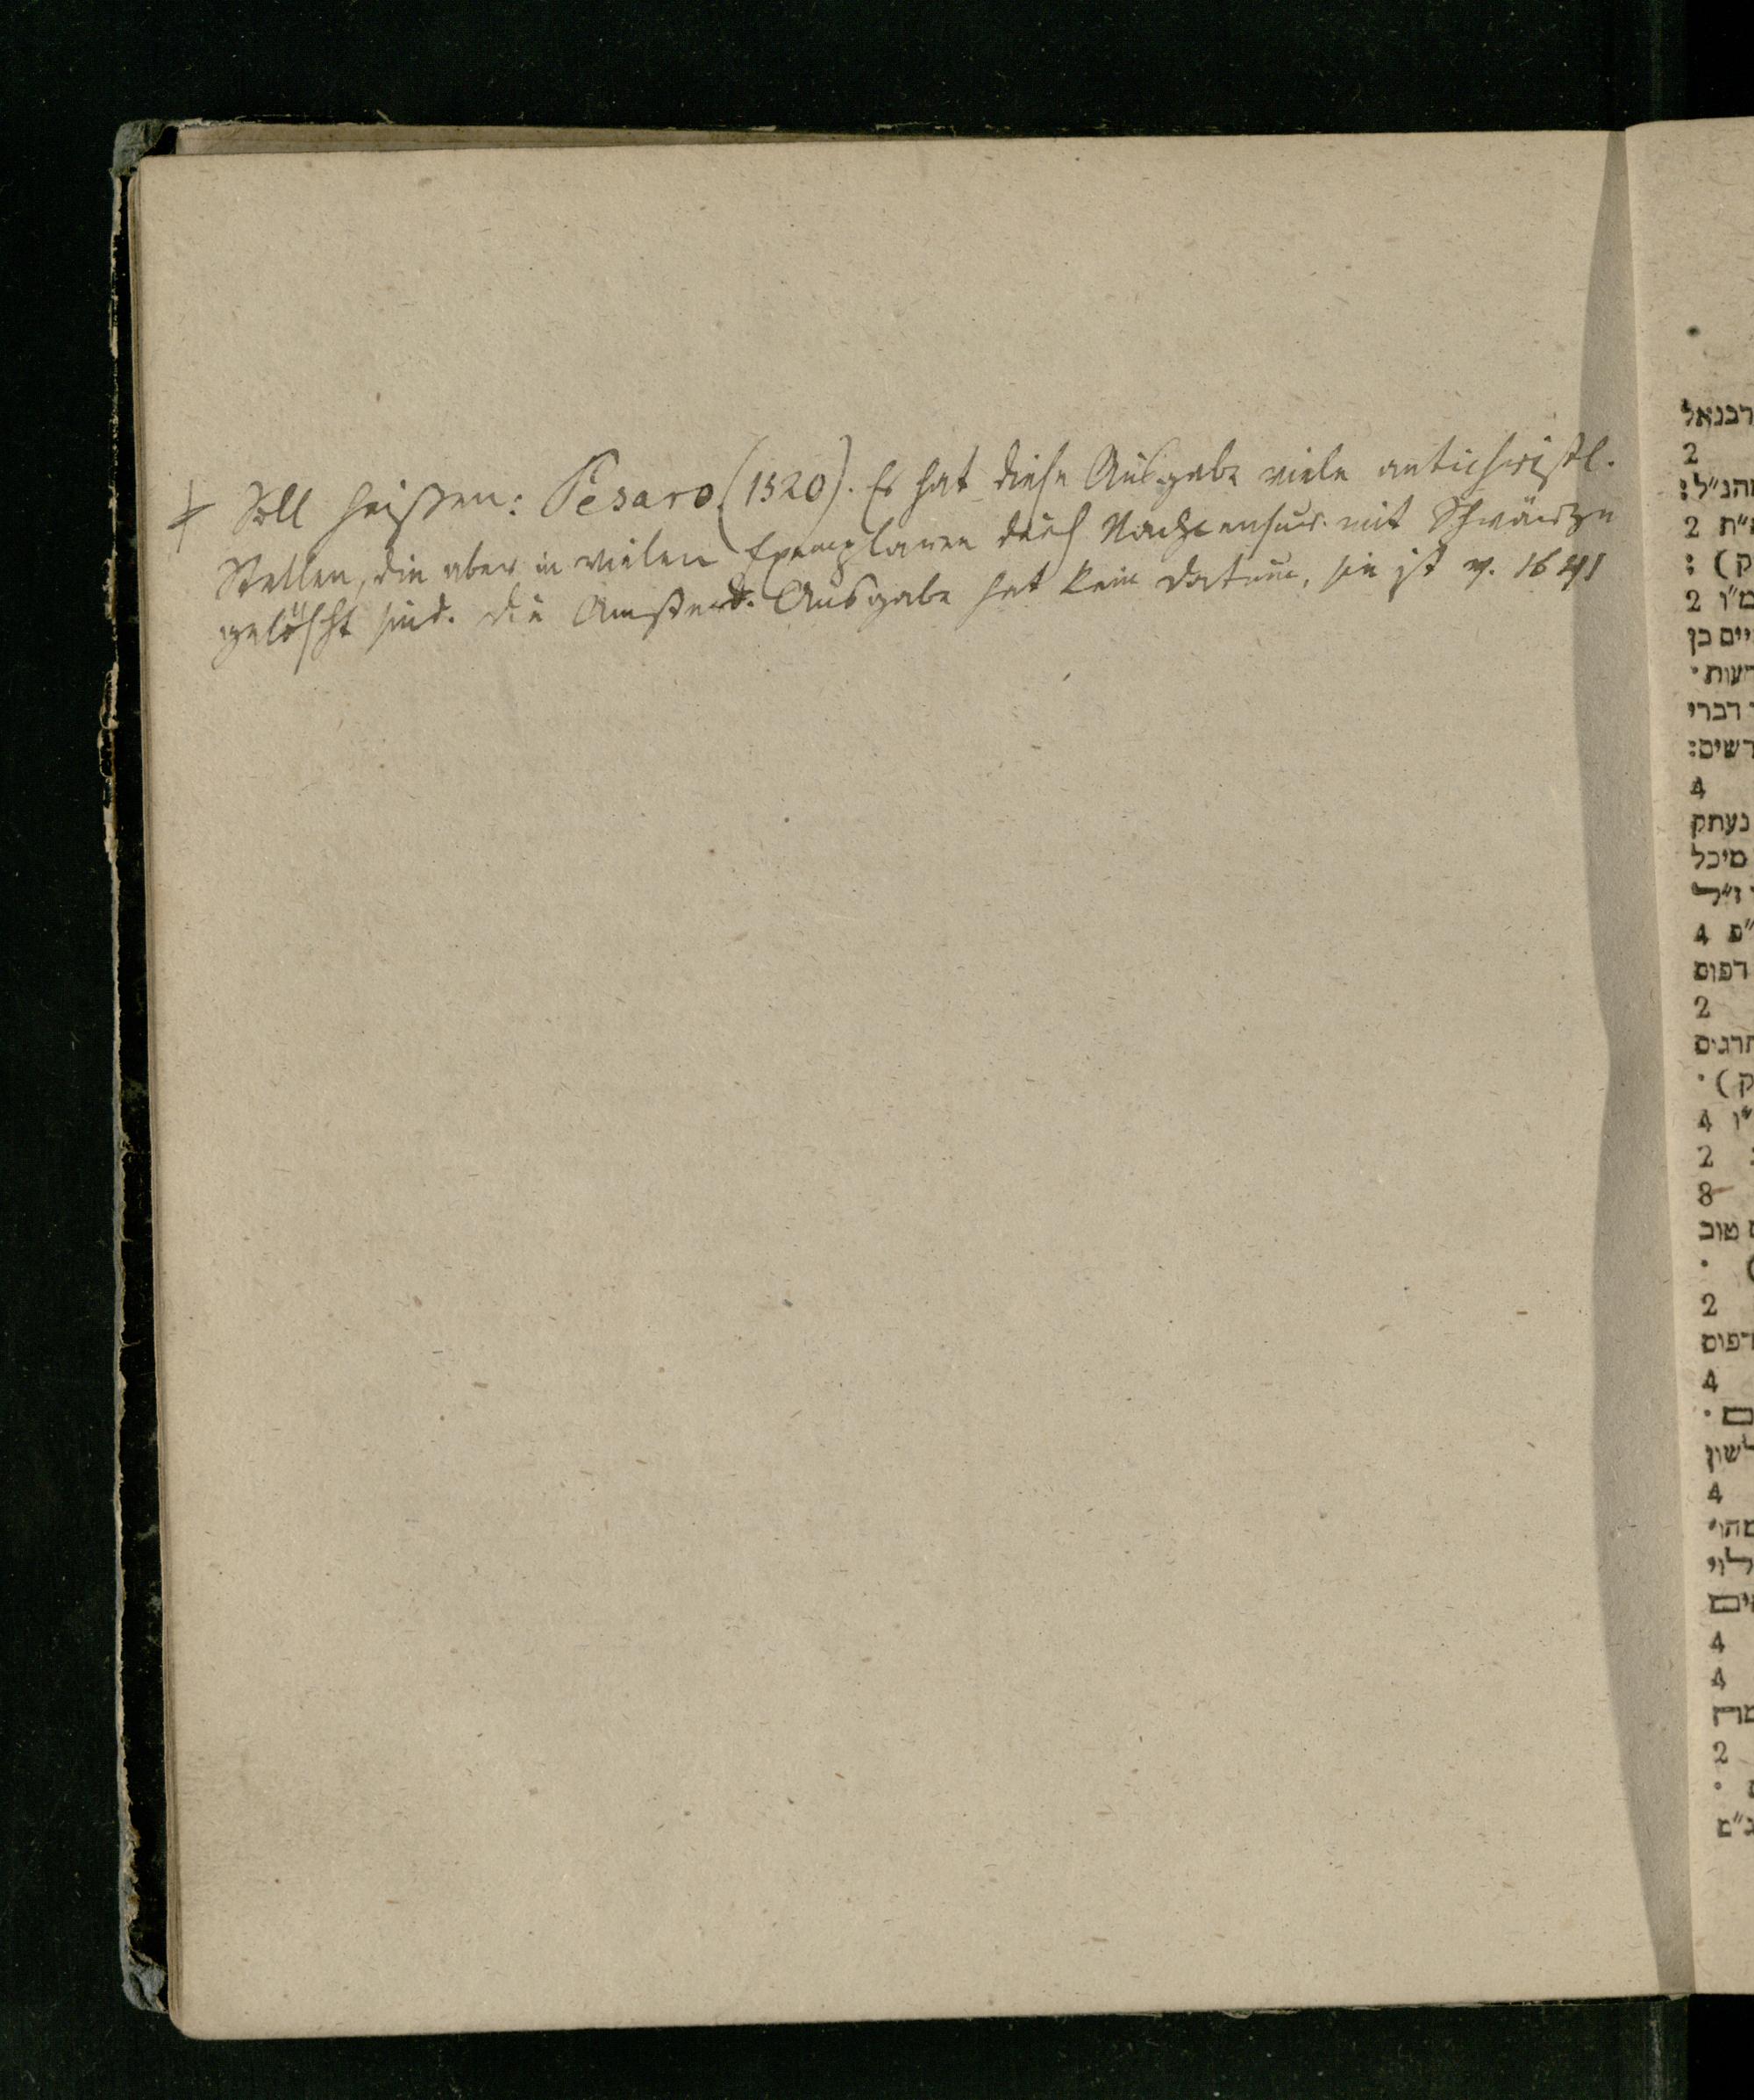 + Soll heißen: Pesaro (1520). Es hat diese Ausgabe viele antichristl.
Stellen, die aber in vielen Exemplaren durch Nachcensur mit Schwärze
gelöscht sind. Die Amsterd. Ausgabe hat kein Datum, sie ist v. 1641
רבנאל
2
הנ"ל:
2 ת"
ק) :
2 מ"ו
יים בן
דעות·
דברי
רשים:
4
נעתק
מיכל
ז"ל
4 פ"
דפוס
2
תרגים
ק) ·
4 ו"
2
8
טוב
2
דפוס
4
לשון
4
לוי
4
4
2